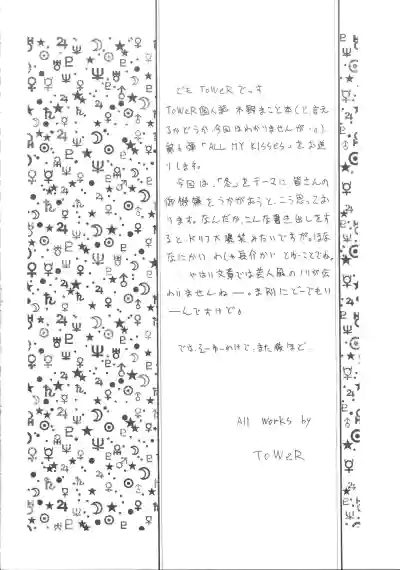 ども ToWeR でっす
ToWeR個人誌 木野まこと本(と言え
るかどうか今回はわかりませんが…。)
第6弾「ALL MY KISSES」をお送
りします。
今回は、「冬」をテーマに皆さんの
御機嫌をうかがおうと、こう思ってお
ります。なんだか、こんな書き出しをす
ると、ドリフ大爆笑みたいですが。
なにかい わしゃ長介かい とゆーことでね。
やはり文章では芸人風のノリが伝
わりませんねー。ま別にどーでもい
ーんですけど。
では、そーゆーわけで、また後ほど…
All works by
ToWeR